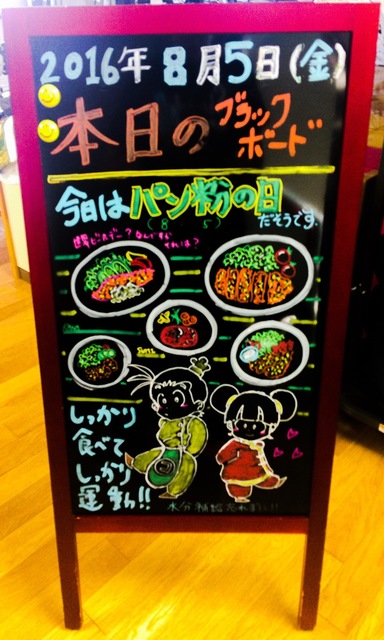 2016年 8月5日(金)
本日の
ブラック
ボード
今日はパン粉の日
(8 5)
だそうです。
しっかり
食べて
しっかり
運動!!
水分補給忘れずに!!